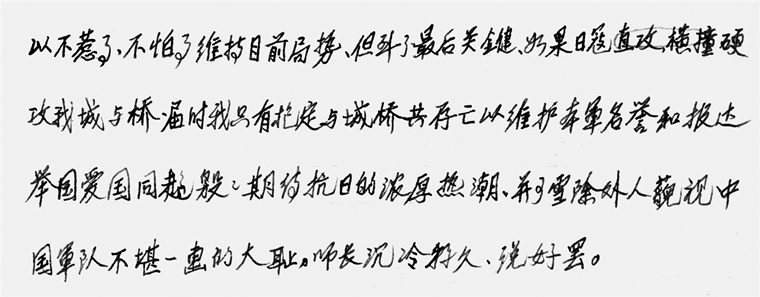 以不惹了、不怕了维持目前局势、但到了最后关键、如果日寇直攻、横撞硬
攻我城与桥、届时我只有抱定与城桥共存亡以维护本军名誉和报达
举国爱国同趋殷々期待抗日的浓厚热潮、并可雪除外人藐视中
国軍队不堪一击的大耻。师长沉冷移久、说好罢。